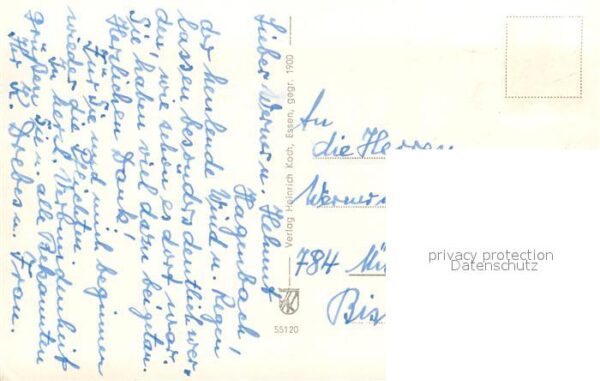 Lieber Werner u. Helmut
Hagenbach!
der heulende Wind u. Regen
lassen besonders deutlich wer-
den, wie schön es dort war.
Sie haben viel dazu beigetan.
Herzlichen Dank!
Für Sie und mich beginnen
wieder die Pflichten.
In herzl. Verbundenheit
grüßen Sie u. alle Bekannten
Ihr K. Drebes u. Frau.
Verlag Heinrich Koch, Essen, gegr. 1900
55120
An
die Herren
Werner
784 Mü
Bis
privacy protection
Datenschutz